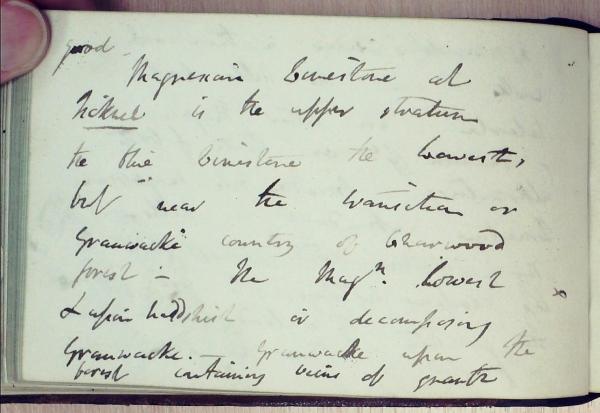 good
Magnesian Limestone at
Ticknel is the upper stratum
the blue Limestone the lowest,
but near the transition or
Grauwacke country of Charwood
forest - the Magn. lowest
& upon is decomposing
Grauwacke. - Grauwacke upon the
forest containing veins of granite